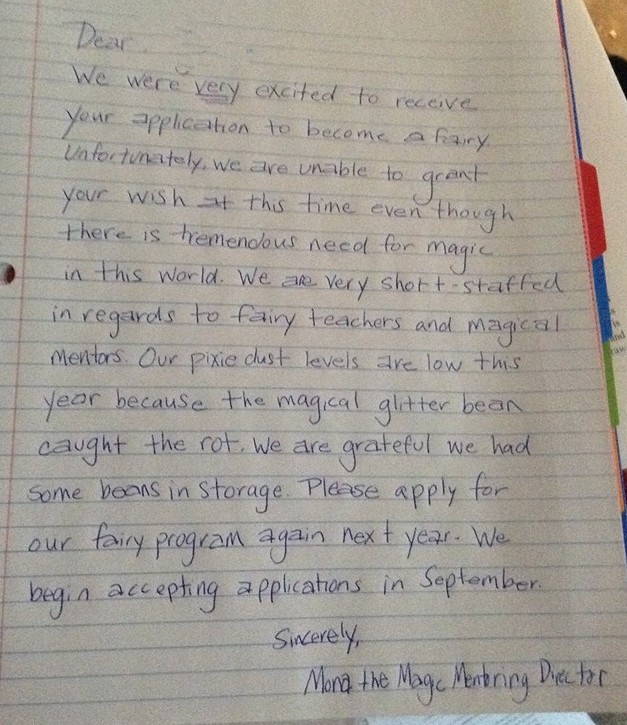 Dear
We were very excited to receive
your application to become a fairy.
Unfortunately, we are unable to grant
your wish at this time even though
there is tremendous need for magic
in this world. We are very short-staffed
in regards to fairy teachers and magical
mentors. Our pixie dust levels are low this
year because the magical glitter bean
caught the rot. We are grateful we had
some beans in storage. Please apply for
our fairy program again next year. We
begin accepting applications in September.
Sincerely,
Mona the Magic Mentoring Director